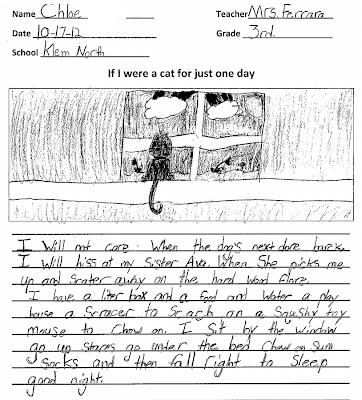 Name Chloe Teacher Mrs. Ferrara
Date 10-17-12 Grade 3rd
School Klem North
If I were a cat for just one day
I Will not care. When the dog's next dore bark.
I will hiss at my Sister Ava. When She picks me
up and scater away on the hard wood flore.
I have a liter box and a food and water a play
house a Scracer to Scrach on a Squshy toy
mouse to chew on. I Sit by the window
go up stares go under the bed Chew on Sum
Socks and then fall right to Sleep
good night.